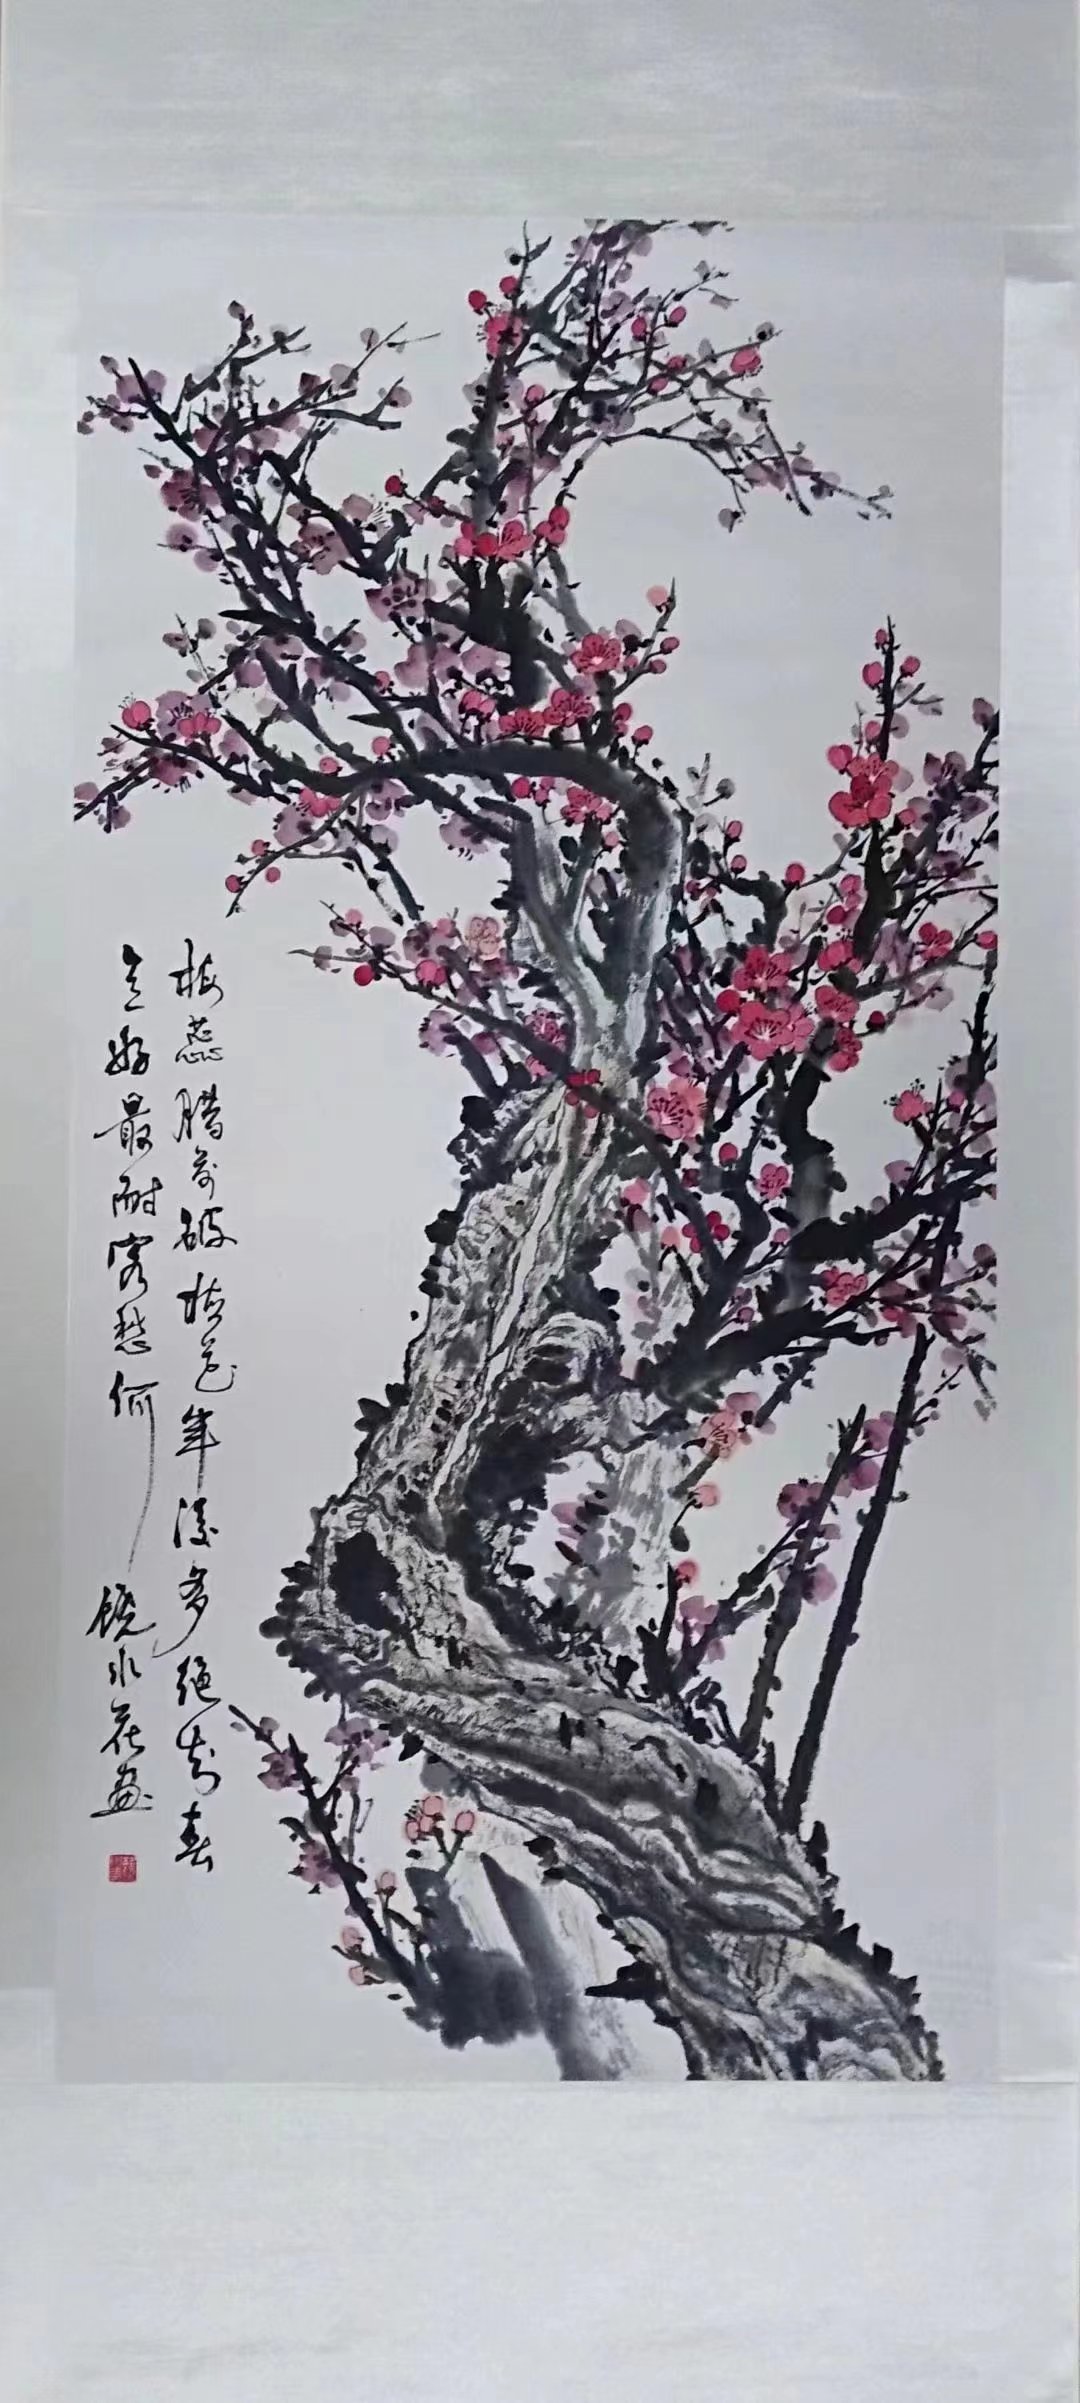 梅蕊腊前破梅花年後多绝知春
意好最耐客愁何
饶水花画